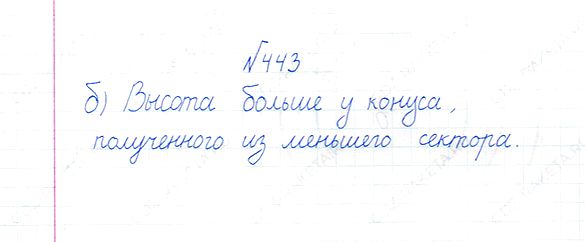 №443
б) Высота больше у конуса,
полученного из меньшего сектора.